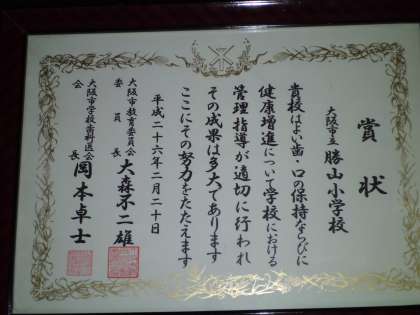 賞状
大阪市立 勝山小学校
貴校はよい歯・口の保持ならびに
健康増進について学校における
管理指導が適切に行われ
その成果は多大であります
ここにその努力をたたえます
平成二十六年二月二十日
大阪市教育委員会
委員長 大森不二雄
大阪市学校歯科医会
会長 岡本卓士